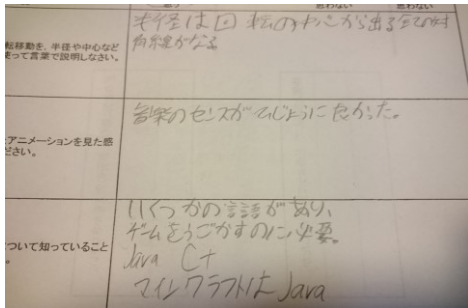 思わない
転移動を、半径や中心など
使って言葉で説明しなさい。
半径は回転の中心から出る全ての対
角線がなる
アニメーションを見た感
ださい。
音楽のセンスがひじょうに良かった。
ついて知っていること
。
いくつかの言語があり、
ゲームをうごかすのに必要。
Java C+
マインクラフトは Java